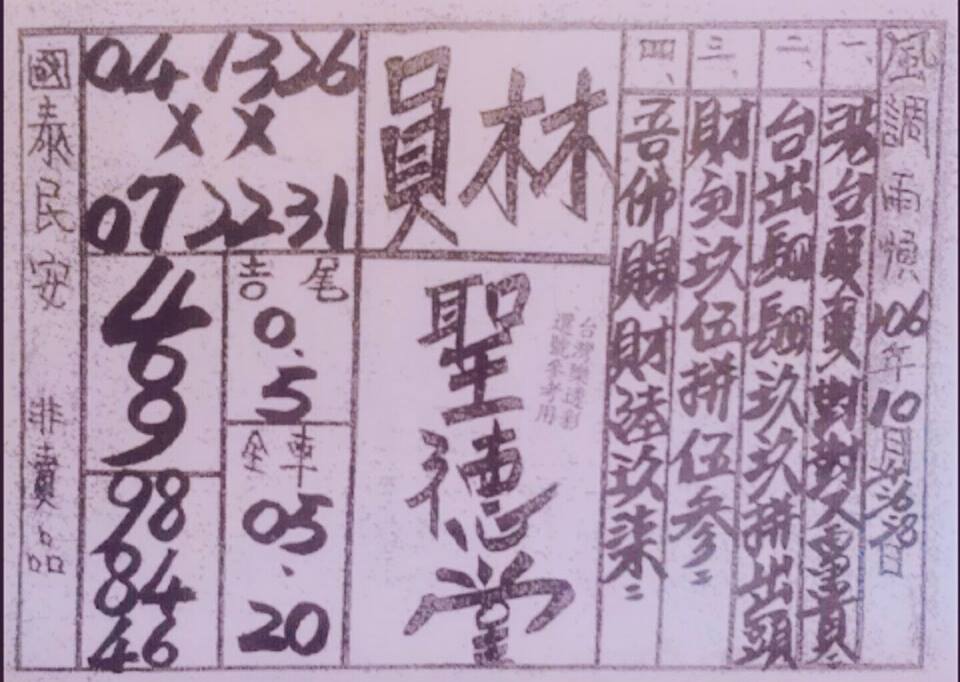 風調雨順 106年10月26.28日
一、台對對又貴
二、台出翩翩玖玖拼出頭
三、財到玖伍拼伍參
四、吾佛賜財陸玖柒
員林
聖德堂
台灣樂透彩
選號參考用
04 13 26
X X
07 22 31
吉尾
0.
5
全車
05.
20
4
8
9
98
84
46
國泰民安 非賣品